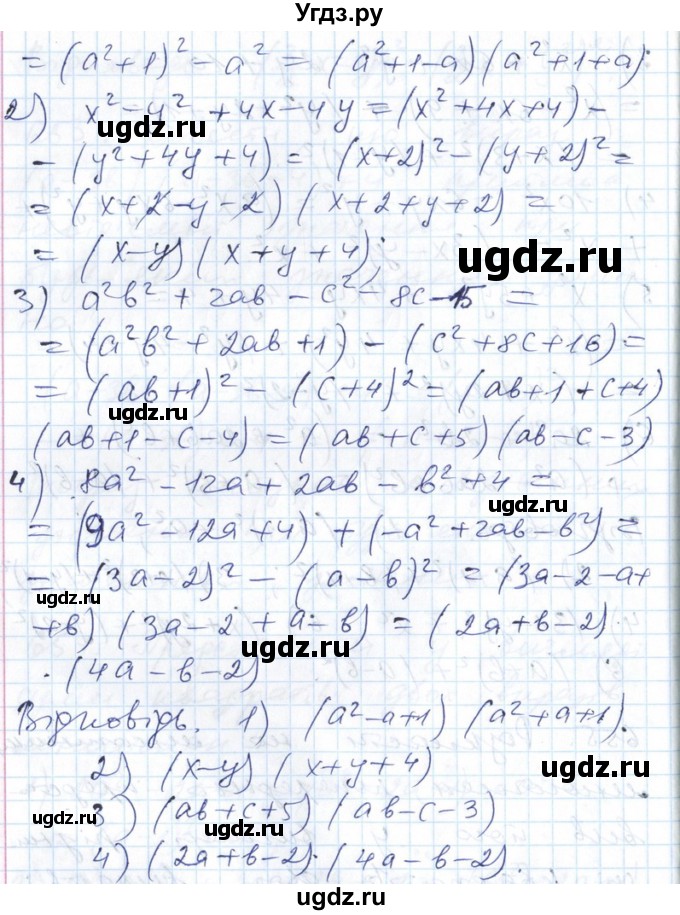 Угдз.ру
= (a²+1)² - a² = (a²+1-a)(a²+1+a).
2) x²-y²+4x-4y = (x²+4x+4) -
ugdz.ru
- (y²+4y+4) = (x+2)²-(y+2)² =
ugdz.ru
= (x+2-y-2)(x+2+y+2) =
= (x-y)(x+y+4).
ugdz.ru
3) a²b² + 2ab - c² - 8c - 15 =
= (a²b²+2ab+1) - (c²+8c+16) =
= (ab+1)² - (c+4)² = (ab+1+c+4)
ugdz.ru
(ab+1-c-4) = (ab+c+5)(ab-c-3)
4) 8a² - 12a + 2ab - b² + 4 =
ugdz.ru
= (9a² - 12a + 4) + (-a² + 2ab - b²) =
= (3a-2)² - (a-b)² = (3a-2-a+
ugdz.ru
+b)(3a-2+a-b) = (2a+b-2)·
ugdz.ru
·(4a-b-2)
Відповідь. 1) (a²-a+1)(a²+a+1).
2) (x-y)(x+y+4)
ugdz.ru
3) (ab+c+5)(ab-c-3)
ugdz.ru
4) (2a+b-2)·(4a-b-2).
ugdz.ru
ugdz.ru